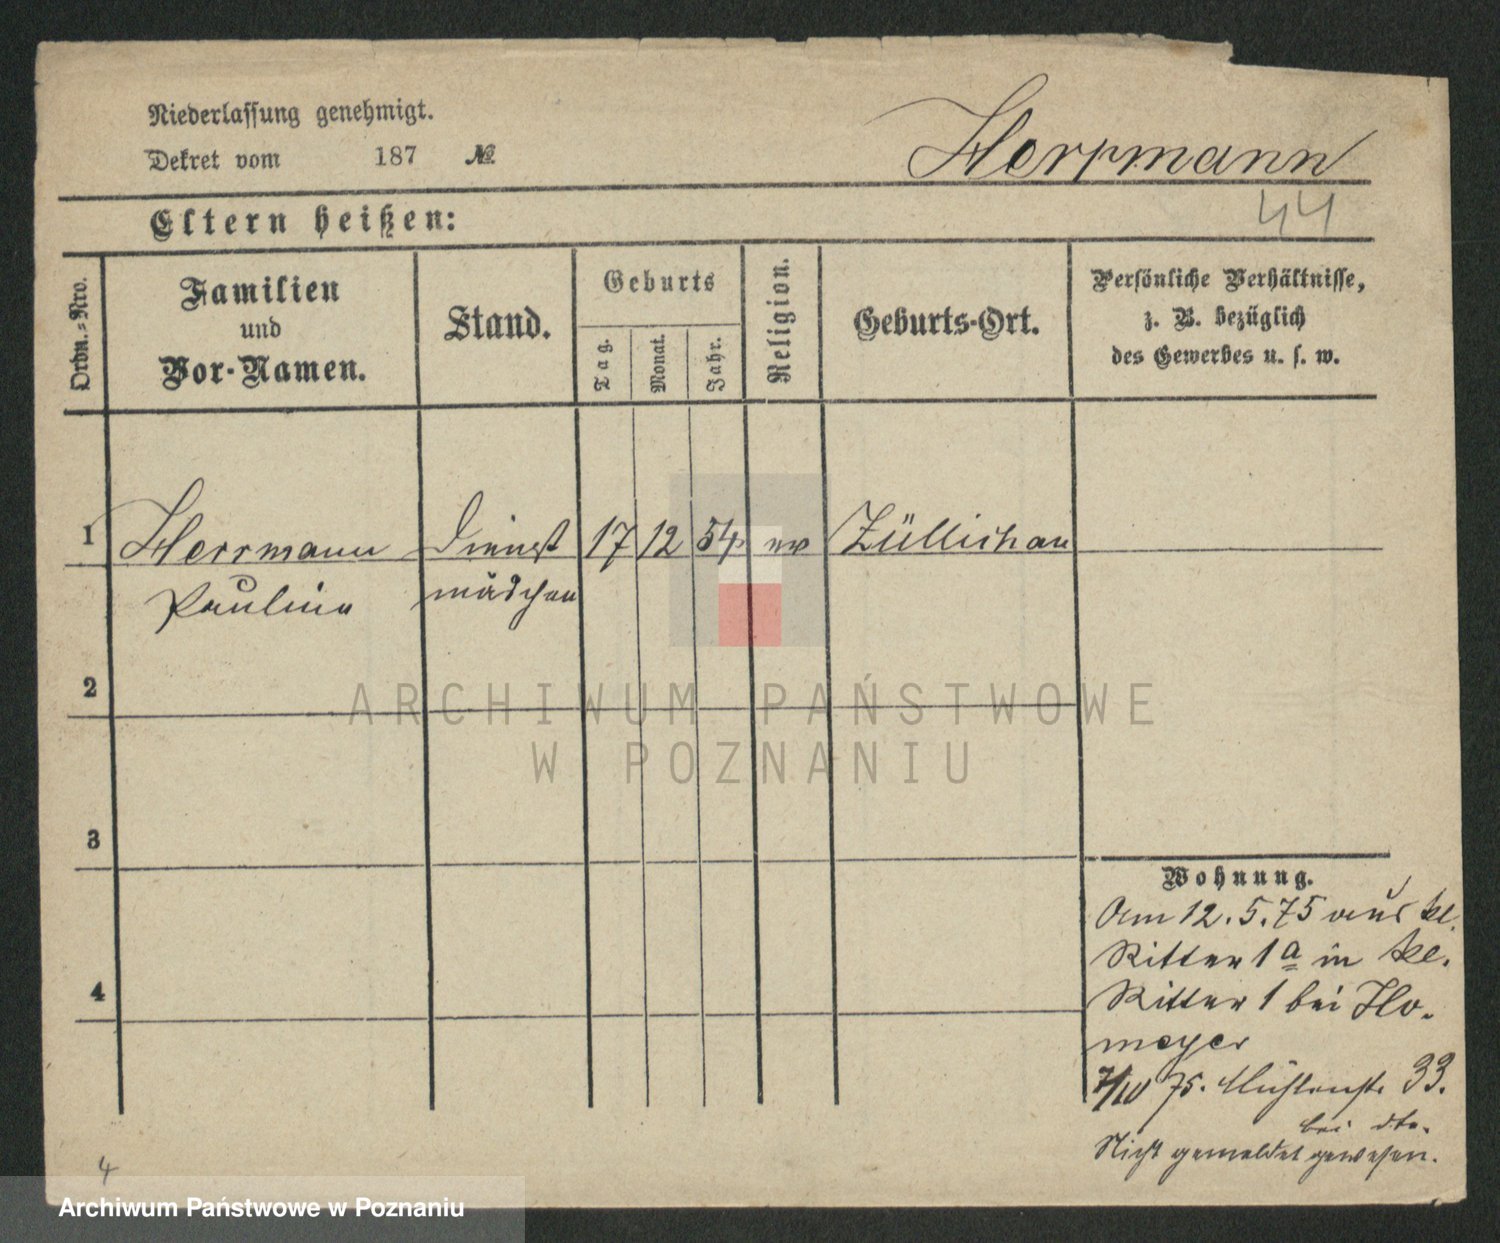 Niederlassung genehmigt.
Dekret vom 187 №
Herrmann
44
Eltern heißen:
Ordn.-Nro.
Familien
und
Vor-Namen.
Stand.
Geburts
Tag.
Monat.
Jahr.
Religion.
Geburts-Ort.
Persönliche Verhältnisse,
z. B. bezüglich
des Gewerbes u. s. w.
1 Herrmann Dienst 17 12 54 ev Züllichau
Pauline mädchen
2
3
4
Wohnung.
Am 12.5.75 aus kl.
Ritter 1a in kl.
Ritter 1 bei Ho-
meyer
7/10 75. Mühlenstr 33.
bei dto.
Nicht gemeldet gewesen.
4
ARCHIWUM PAŃSTWOWE
W POZNANIU
Archiwum Państwowe w Poznaniu